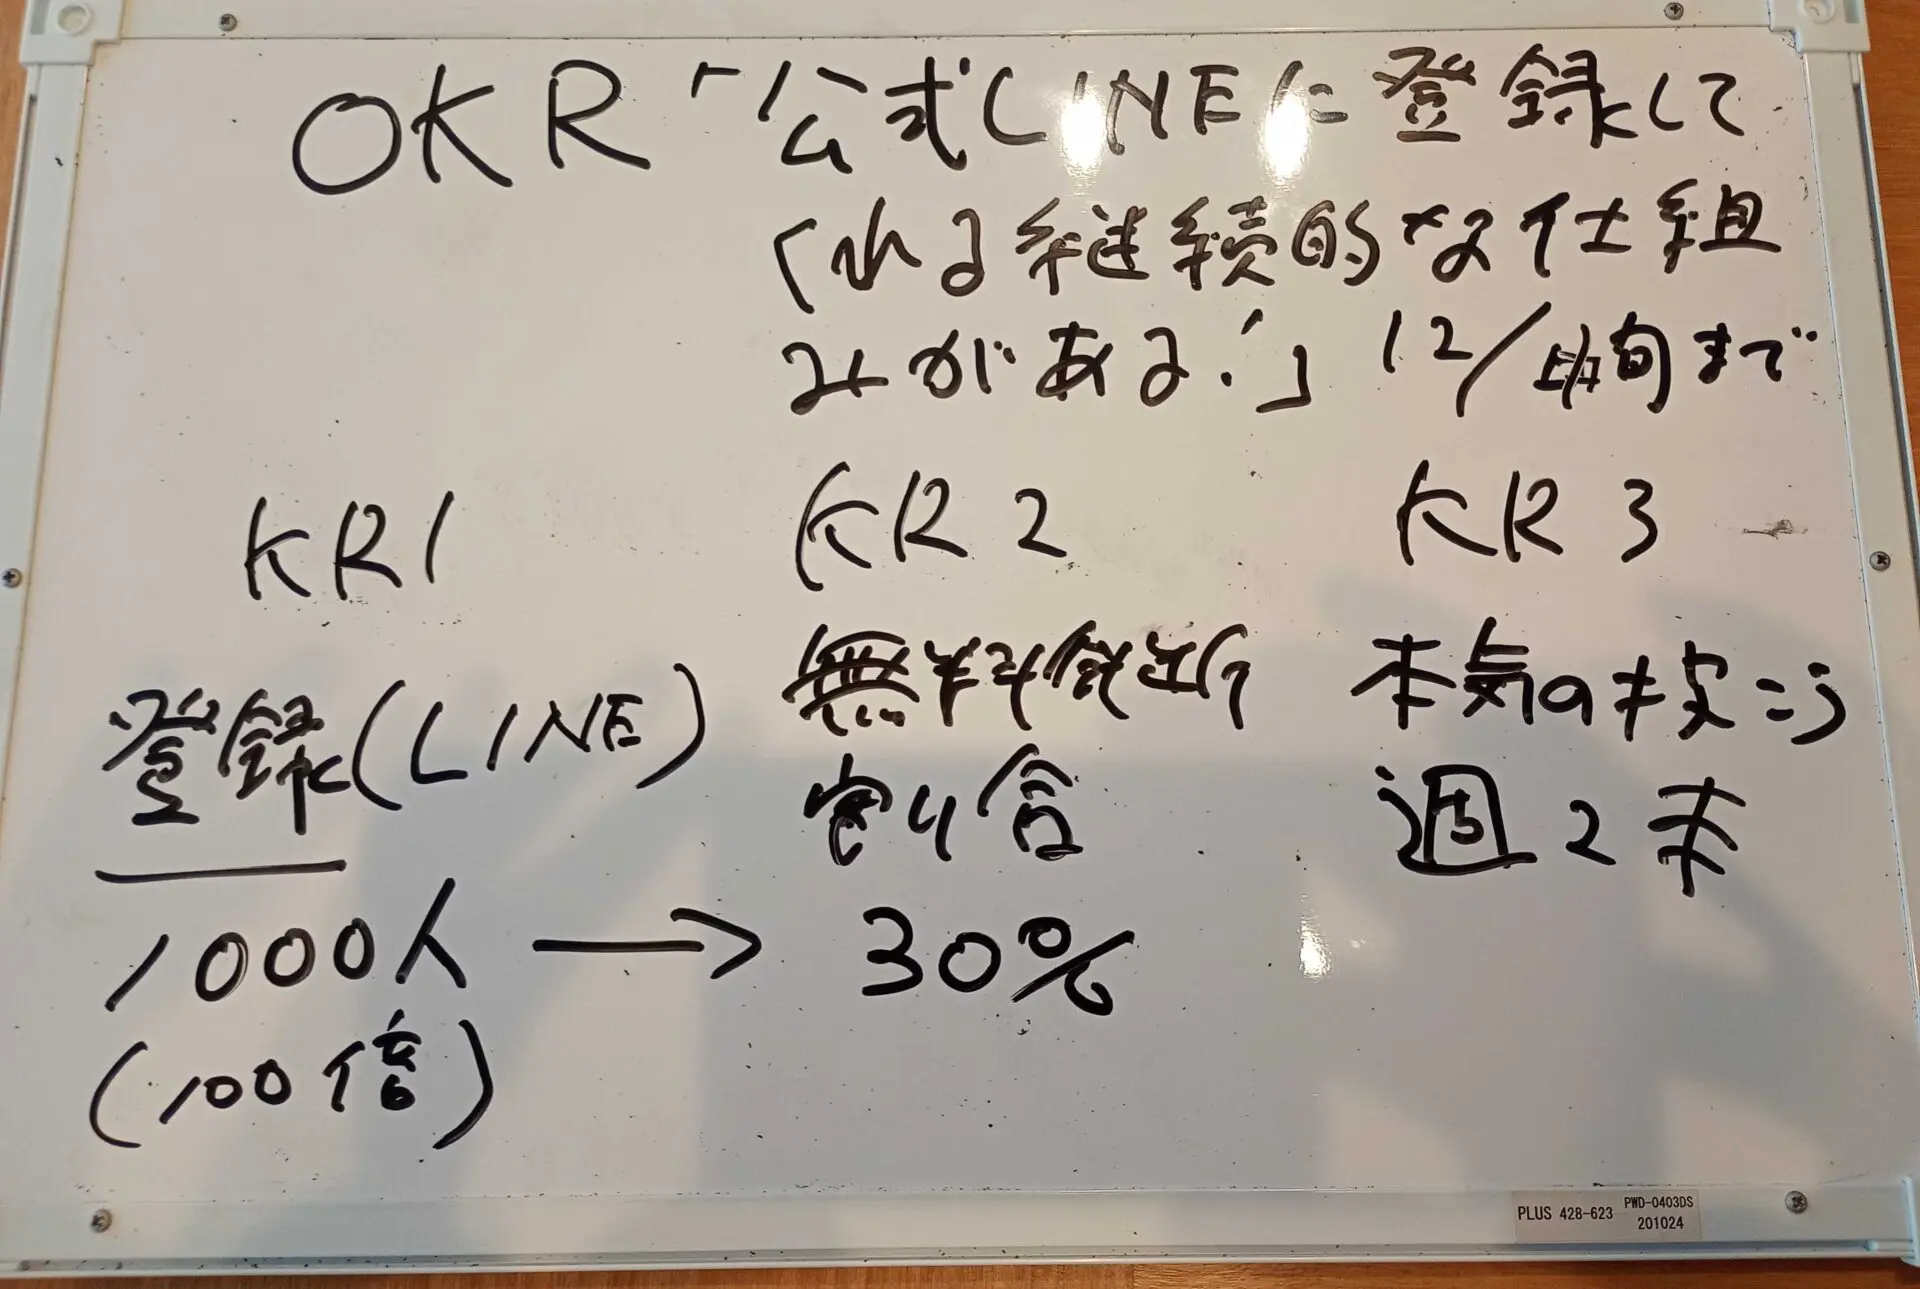 OKR 「公式LINEに登録して
くれる継続的な仕組
みがある!」 12/上旬まで
KR1 KR2 KR3
登録(LINE)
1000人
(100倍)
無料診断
割り合
→ 30%
本気の投こう
週2本
PLUS 428-623 PWD-0403DS
201024